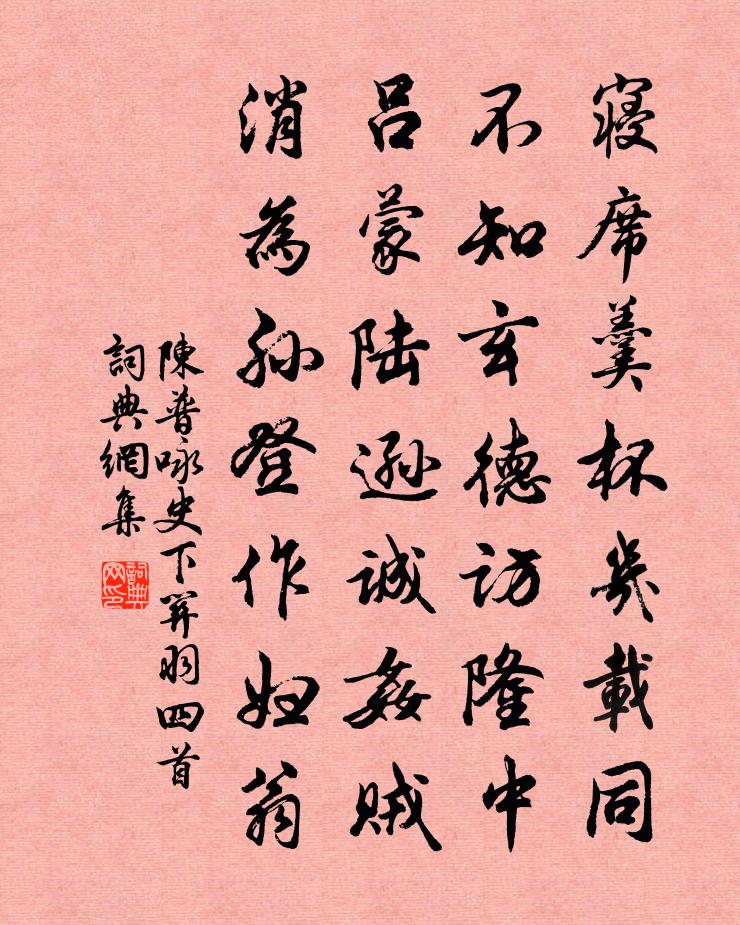 寢席羹杯幾載同
不知玄德訪隆中
吕蒙陆遜誠姦賊
消為孙登作婦翁
陳普咏史下關羽四首
詞典網集
詞典网印